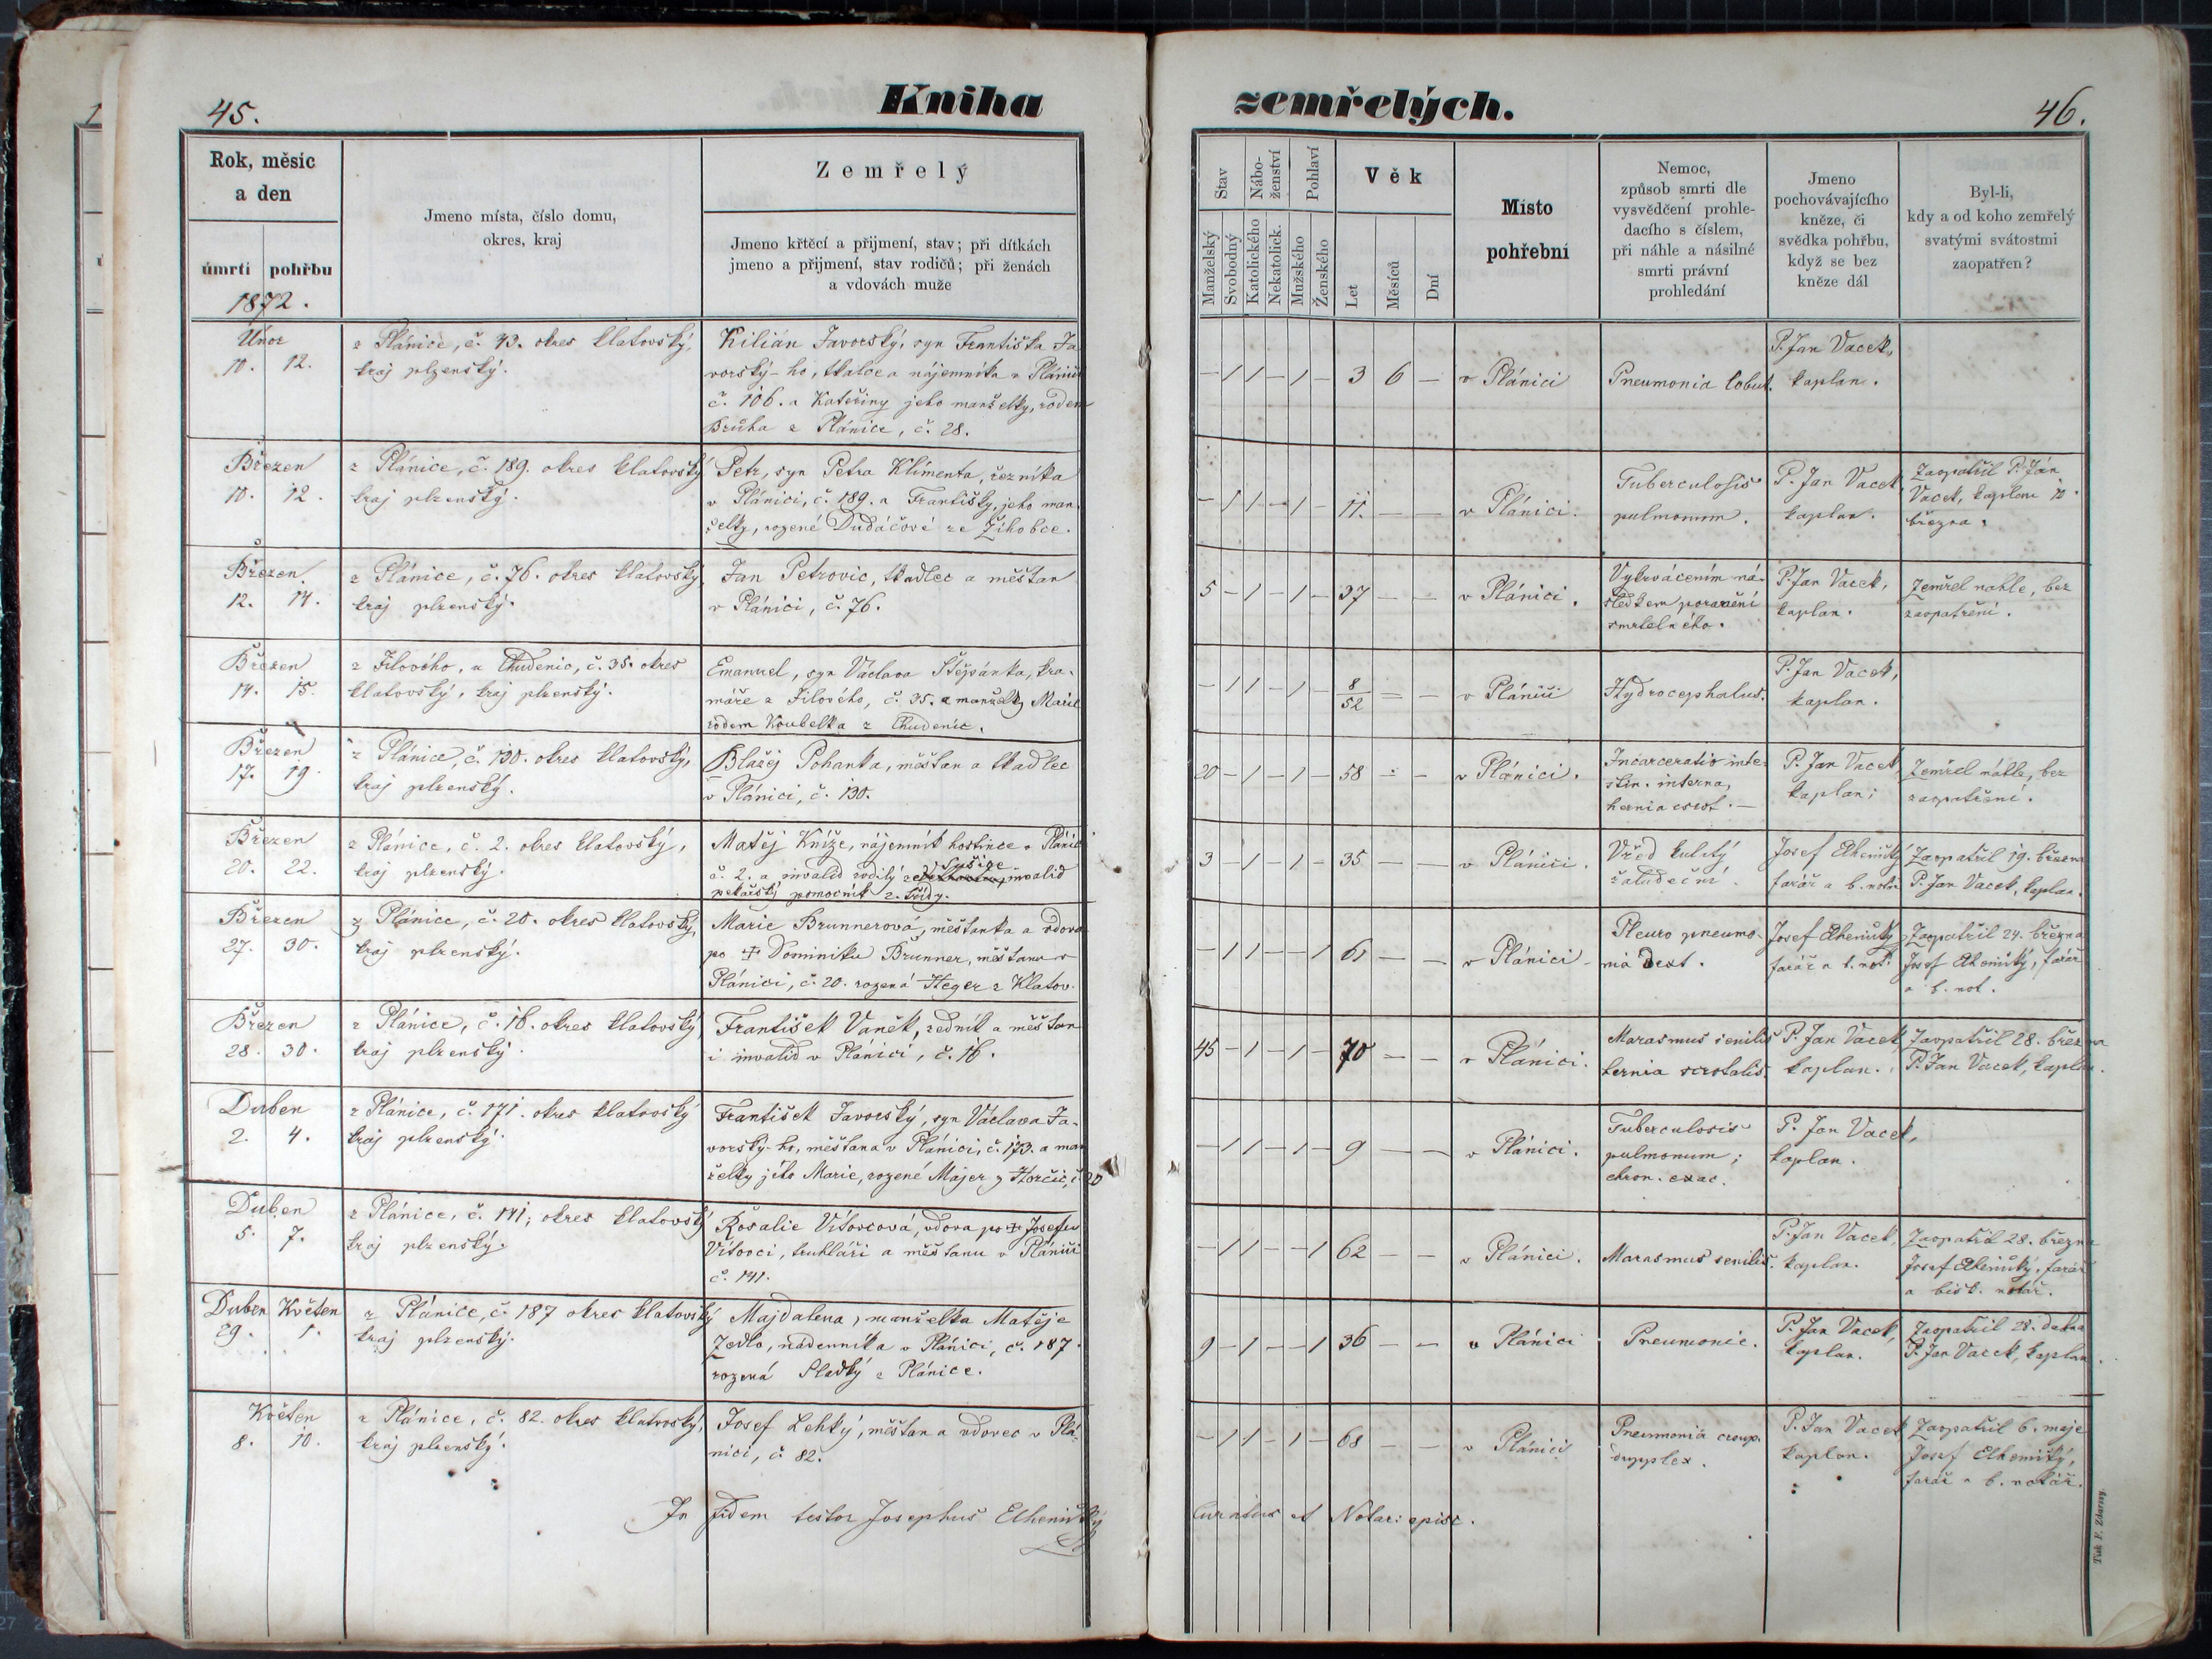 45.
Kniha
zemřelých.
46.
Rok, měsíc
a den
úmrtí pohřbu
1872.
Jmeno místa, číslo domu,
okres, kraj
Zemřelý
Jmeno křtěcí a přijmení, stav; při dítkách
jmeno a přijmení, stav rodičů; při ženách
a vdovách muže
Stav
Manželský
Svobodný
Nábo-
ženství
Katolického
Nekatolick.
Pohlaví
Mužského
Ženského
Věk
Let
Měsíců
Dní
Místo
pohřební
Nemoc,
způsob smrti dle
vysvědčení prohle-
dacího s číslem,
při náhle a násilné
smrti právní
prohledání
Jmeno
pochovávajícího
kněze, či
svědka pohřbu,
když se bez
kněze dál
Byl-li,
kdy a od koho zemřelý
svatými svátostmi
zaopatřen?
Únor
10. 12.
z Plánice, č. 43. okres klatovský,
kraj plzenský.
Kilián Javorský, syn Františka Ja
vorský-ho, tkalce a nájemníka v Plánici
č. 106. a Kateřiny jeho manželky, rodem
Brůha z Plánice, č. 28.
– 1 1 – 1 – 3 6 –
v Plánici
Pneumonia lobul.
P. Jan Vacek,
kaplan.
Březen
10. 12.
z Plánice, č. 189. okres klatovský
kraj plzenský.
Petr, syn Petra Klimenta, řezníka
v Plánici, č. 189. a Františky, jeho man
želky, rozené Dudáčové ze Žihobce.
– 1 1 – 1 – 11. – –
v Plánici.
Tuberculosis
pulmonum.
P. Jan Vacek
kaplan.
Zaopatřil P. Ján
Vacek, kaplan 10.
března.
Březen
12. 14.
z Plánice, č. 76. okres klatovský
kraj plzenský.
Jan Petrovic, tkadlec a měšťan
v Plánici, č. 76.
5 – 1 – 1 – 37 – –
v Plánici.
Vykrvácením ná-
sledkem poranění
smrtelného.
P. Jan Vacek,
kaplan.
Zemřel náhle, bez
zaopatření.
Březen
14. 15.
z Jílového, u Chudenic, č. 35. okres
klatovský, kraj plzenský.
Emanuel, syn Václava Štěpánka, kra-
máře z Jílového, č. 35. a manželky Marie
rodem Koubelka z Chudenic.
– 1 1 – 1 – 8/52 – –
v Plánici
Hydrocephalus.
P. Jan Vacek,
kaplan.
Březen
17. 19.
z Plánice, č. 130. okres klatovský,
kraj plzenský.
Blažej Pohanka, měšťan a tkadlec
v Plánici, č. 130.
20 – 1 – 1 – 58 – –
v Plánici.
Incarceratio inte-
stin. interna,
hernia scrot. –
P. Jan Vacek,
kaplan;
Zemřel náhle, bez
zaopatření.
Březen
20. 22.
z Plánice, č. 2. okres klatovský,
kraj plzenský.
Matěj Kníže, nájemník hostince v Plánici
č. 2. a invalid rodilý ze Sušice invalid
pekařský pomocník 2. třídy.
3 – 1 – 1 – 35 – –
v Plánici.
Vřed kulatý
žaludeční.
Josef Elhenický
farář a b. notář
Zaopatřil 19. března
P. Jan Vacek, kaplan.
Březen
27. 30.
z Plánice, č. 20. okres klatovský,
kraj plzenský.
Marie Brunnerová, měšťanka a vdova
po † Dominiku Brunner, měšťanu v
Plánici, č. 20. rozená Heger z Klatov.
– 1 1 – – 1 61 – –
v Plánici
Pleuro pneumo-
nia dext.
Josef Elhenický
farář a b. not.
Zaopatřil 24. března
Josef Elhenický, farář
a b. not.
Březen
28. 30.
z Plánice, č. 16. okres klatovský
kraj plzenský.
František Vaněk, zedník a měšťan
i invalid v Plánici, č. 16.
45 – 1 – 1 – 70 – –
v Plánici.
Marasmus senilis
hernia scrotalis.
P. Jan Vacek
kaplan.
Zaopatřil 28. března
P. Jan Vacek, kaplan.
Duben
2. 4.
z Plánice, č. 171. okres klatovský
kraj plzenský.
František Javorský, syn Václava Ja-
vorský-ho, měšťana v Plánici, č. 173. a man
želky jeho Marie, rozené Majer z Horčic, č. 20
– 1 1 – 1 – 9 – –
v Plánici.
Tuberculosis
pulmonum;
chron. exac.
P. Jan Vacek,
kaplan.
Duben
5. 7.
z Plánice, č. 141; okres klatovský
kraj plzenský.
Rosalie Vítovcová, vdova po † Josefu
Vítovci, truhláři a měšťanu v Plánici
č. 141.
– 1 1 – – 1 62 – –
v Plánici.
Marasmus senilis.
P. Jan Vacek,
kaplan.
Zaopatřil 28. března
Josef Elhenický, farář
a bisk. notář.
Duben Květen
29. 1.
z Plánice, č. 187 okres klatovský
kraj plzenský.
Majdalena, manželka Matěje
Zedlo, nádenníka v Plánici, č. 187.
rozená Sladký z Plánice.
9 – 1 – – 1 36 – –
v Plánici
Pneumonie.
P. Jan Vacek,
kaplan.
Zaopatřil 28. dubna
P. Jan Vacek, kaplan.
Květen
8. 10.
z Plánice, č. 82. okres klatovský,
kraj plzenský.
Josef Lehký, měšťan a vdovec v Plá-
nici, č. 82.
– 1 1 – 1 – 68 – –
v Plánici
Pneumonia croup.
dupplex.
P. Jan Vacek
kaplan.
Zaopatřil 6. maje
Josef Elhenický,
farář a b. notář.
In fidem testor Josephus Elhenický
Curatus et Notar: episc.
Tisk F. Zdarssy.